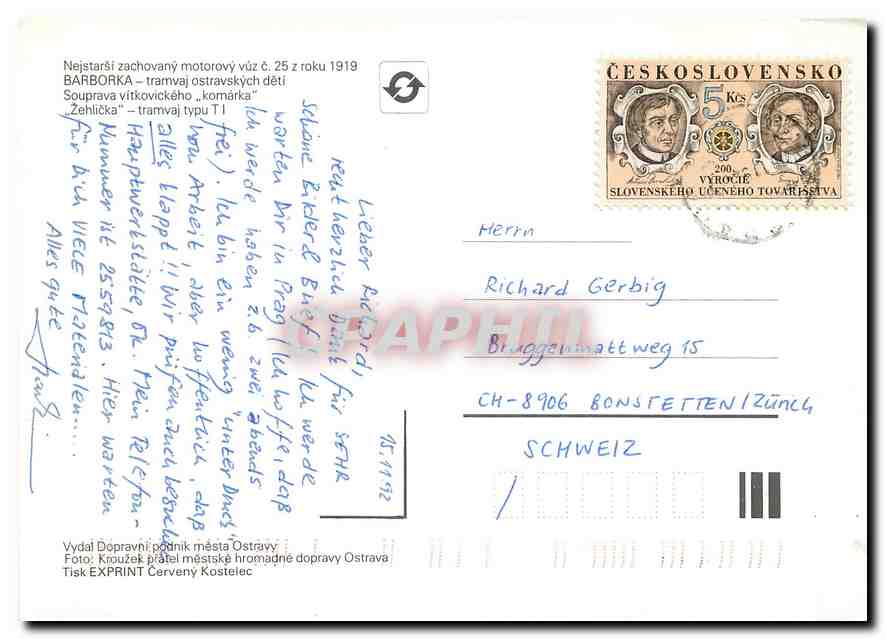 Nejstarší zachovaný motorový vůz č. 25 z roku 1919
BARBORKA – tramvaj ostravských dětí
Souprava vítkovického „komárka"
„Žehlička" – tramvaj typu T I
ČESKOSLOVENSKO
5 Kčs
200.
VÝROČIE
SLOVENSKÉHO UČENÉHO TOVARIŠSTVA
15.11.92
Lieber Richard,
recht herzlich Dank für SEHR
schöne Bilder & Brief. Ich werde
warten Dir in Prag (Ich hoffe, daß
Ich werde haben z.b. zwei abends
frei). Ich bin ein wenig "unter Druck"
von Arbeit, aber hoffentlich, daß
alles klappt!! Wir prüfen auch besuchen
Hauptwerkstätte, OK. Mein Telefon-
Nummer ist 2559813. Hier warten
für Dich VIELE Materialen....
Alles gute
Herrn
Richard Gerbig
Bruggenmattweg 15
CH-8906 BONSTETTEN/Zürich
SCHWEIZ
CPAPHIL
Vydal Dopravní podnik města Ostravy
Foto: Kroužek přátel městské hromadné dopravy Ostrava
Tisk EXPRINT Červený Kostelec